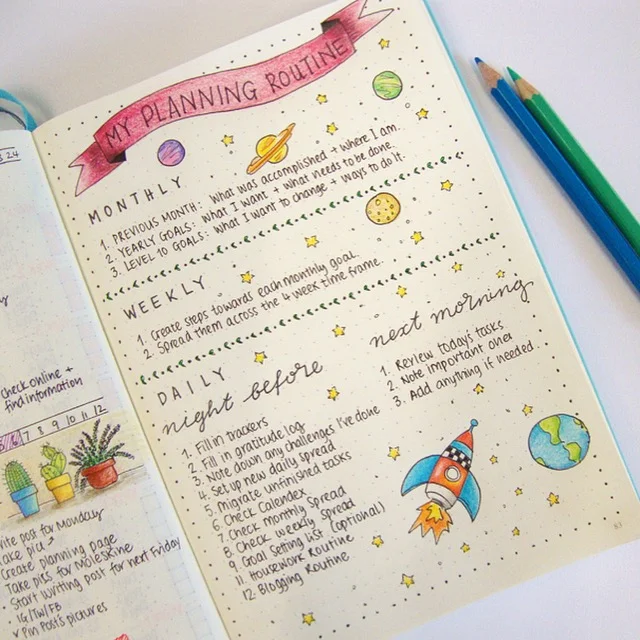 24
check online +
find information
6 7 8 9 10 11 12
rite post for Monday
Create planning page
Take pics for Moleskine
Start writing post for next Friday
IG/TW/FB
Pin Post's pictures
MY PLANNING ROUTINE
MONTHLY
1. PREVIOUS MONTH: what was accomplished + where I am.
2. YEARLY GOALS: what I want + what needs to be done.
3. LEVEL 10 GOALS: what I want to change + ways to do it.
WEEKLY
1. Create steps towards each monthly goal.
2. Spread them across the 4 week time frame.
DAILY
night before
1. Fill in trackers
2. Fill in gratitude log
3. Note down any challenges I've done
4. Set up new daily spread
5. Migrate unfinished tasks
6. Check Calendex
7. Check monthly spread
8. Check weekly spread
9. Goal setting list (optional)
11. Housework Routine
12. Blogging Routine
next morning
1. Review today's tasks
2. Note important ones
3. Add anything if needed
83